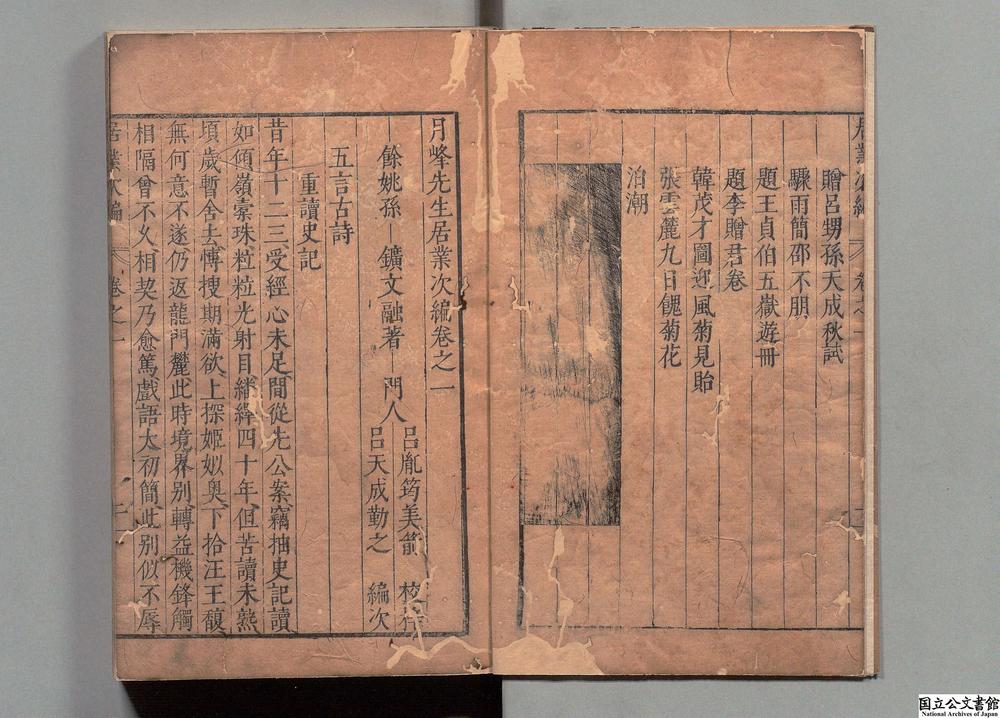 居業次編
卷之一
贈呂甥孫天成秋試
驟雨簡邵不朋
題王貞伯五嶽遊冊
題李贈君卷
韓茂才圖迎風菊見貽
張雲麓九日餽菊花
泊潮
月峰先生居業次編卷之一
餘姚孫鑛文融著 門人
呂胤筠美箭 校
呂天成勤之 編次
五言古詩
重讀史記
昔年十二三受經心未足間從先公案竊抽史記讀
如傾嶺𡩡珠粒粒光射目繙繹四十年但苦讀未熟
頃歲暫舍去慱搜期滿欲上探姬姒奥下拾汪王馥
無何意不遂仍返龍門麓此時境界别轉益機鋒觸
相隔曾不久相契乃愈篤戲語太初簡此别似不辱
居業次編
卷之一
国立公文書館
National Archives of Japan